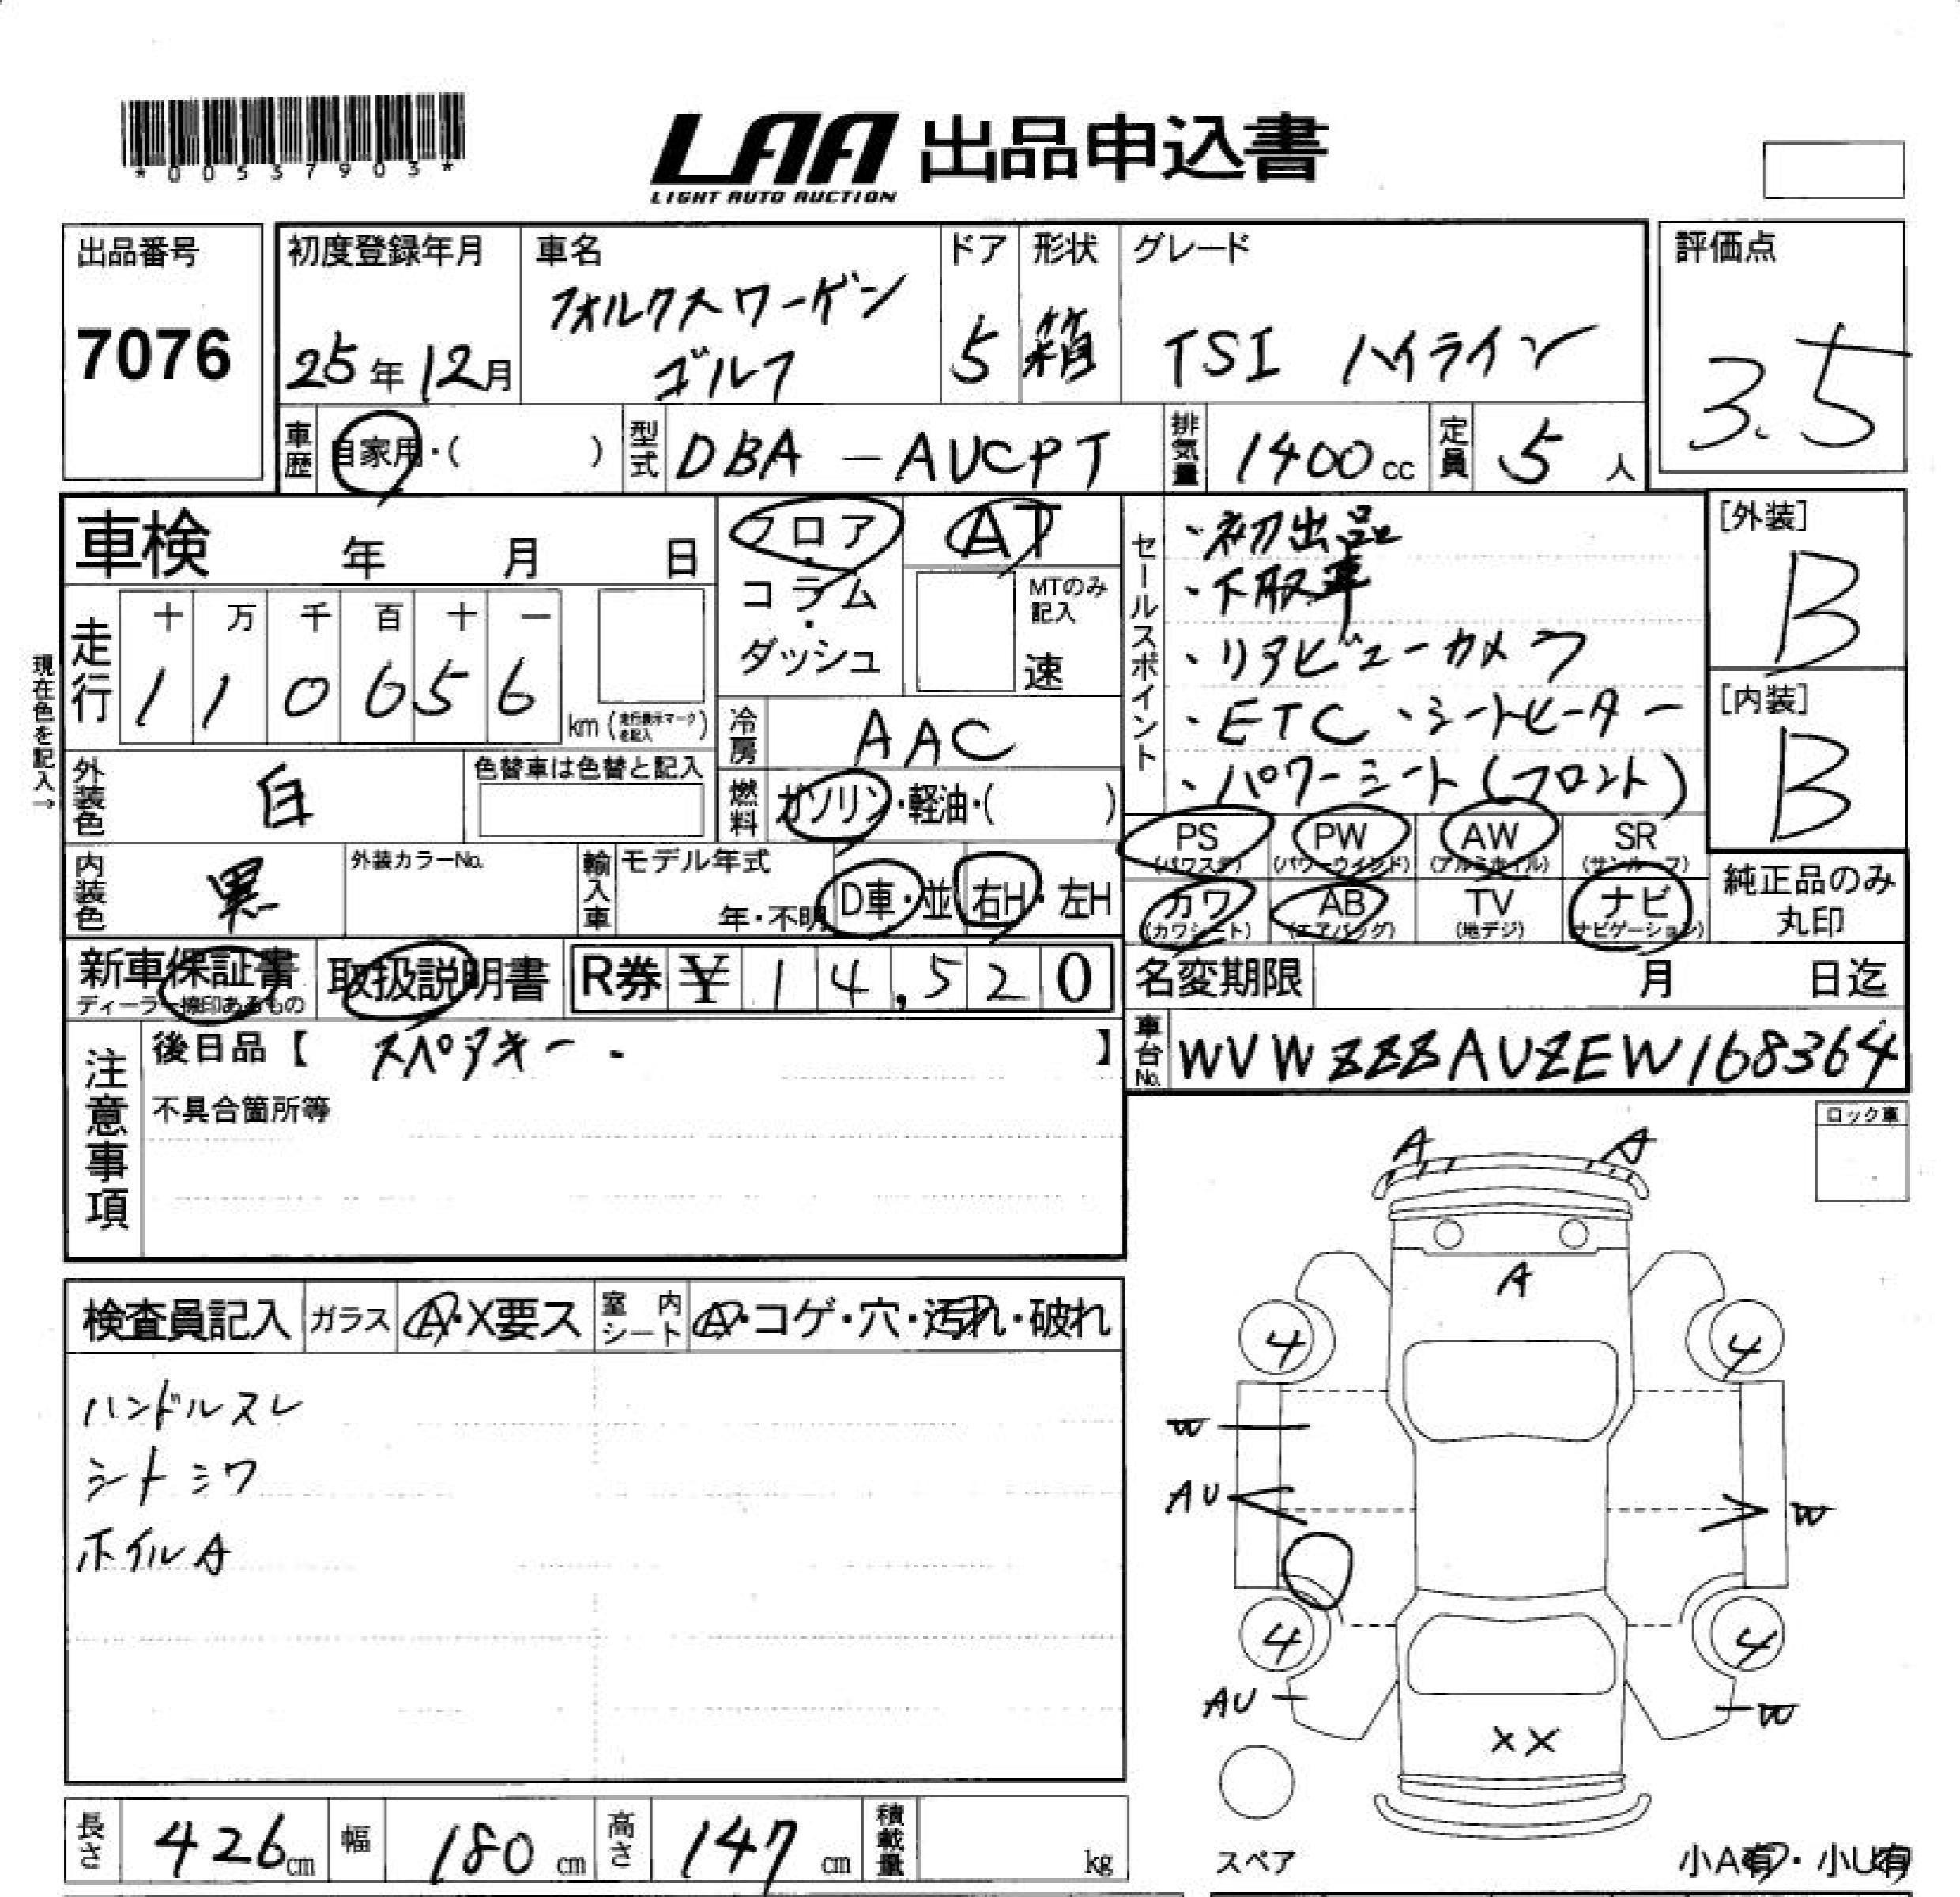 *00537903*
LAA 出品申込書
LIGHT AUTO AUCTION
出品番号
7076
初度登録年月
25年12月
車名
フォルクスワーゲン
ゴルフ
ドア
5
形状
箱
グレード
TSI ハイライン
評価点
3.5
車歴
自家用・( )
型式
DBA-AUCPT
排気量
1400cc
定員
5人
車検 年 月 日
フロア・コラム・ダッシュ
AT
MTのみ記入
速
セールスポイント
・初出品
・下取車
・リアビューカメラ
・ETC ・シートヒーター
・パワーシート(フロント)
[外装]
B
[内装]
B
現在色を記入→
走行
十 万 千 百 十 一
1 1 0 6 5 6
km (走行表示マークを記入)
冷房
AAC
外装色
白
色替車は色替と記入
燃料
ガソリン・軽油・( )
PS (パワステ)
PW (パワーウインド)
AW (アルミホイル)
SR (サンルーフ)
内装色
黒
外装カラーNo.
輸入車
モデル年式
年・不明
D車・並
右H・左H
カワ (カワシート)
AB (エアバッグ)
TV (地デジ)
ナビ (ナビゲーション)
純正品のみ
丸印
新車保証書
ディーラー検印あるもの
取扱説明書
R券 ¥ 14,520
名変期限 月 日迄
注意事項
後日品【 スペアキー・ 】
不具合箇所等
車台No.
WVWZZZAUZEW168364
ロック車
A A
A
4 4
W
AU W
4 4
AU W
XX
スペア
小A有・小U有
検査員記入
ガラス
A・X要ス
室内シート
A・コゲ・穴・汚れ・破れ
ハンドルスレ
シートシワ
ホイルA
長さ 426cm
幅 180cm
高さ 147cm
積載量 kg